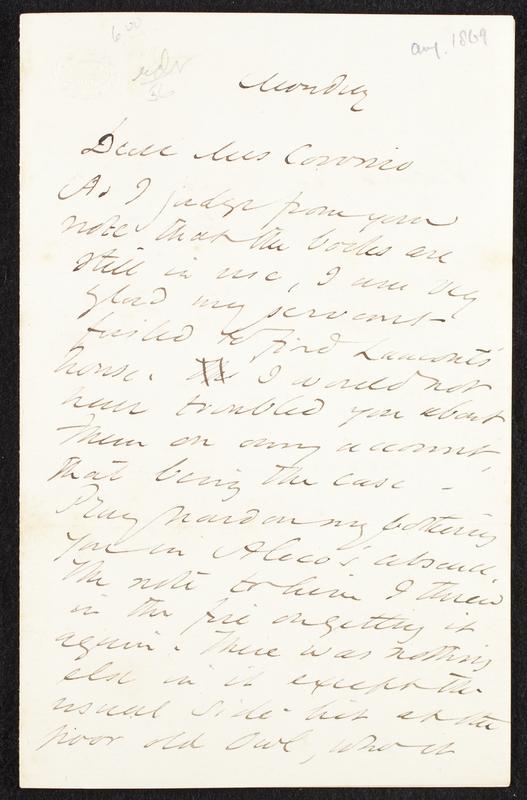 Aug. 1869
600
Monday
Dear Mrs Coronio
As I judge from your
note that the books are
still in use, I am very
glad my servant
failed to find Lamont's
house. I would not
have troubled you about
them on any account,
that being the case -
Pray pardon my bothering
you in Aleco's absence.
The note to him I threw
in the fire on getting it
again. There was nothing
else in it except the
usual side hit at the
poor old Owl, who it